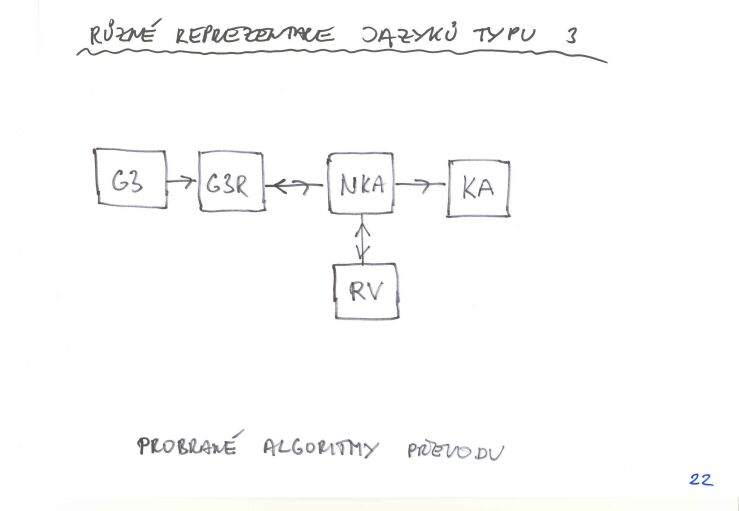 RŮZNÉ REPREZENTACE JAZYKŮ TYPU 3
G3 G3R NKA KA
RV
PROBRANÉ ALGORITMY PŘEVODU
22